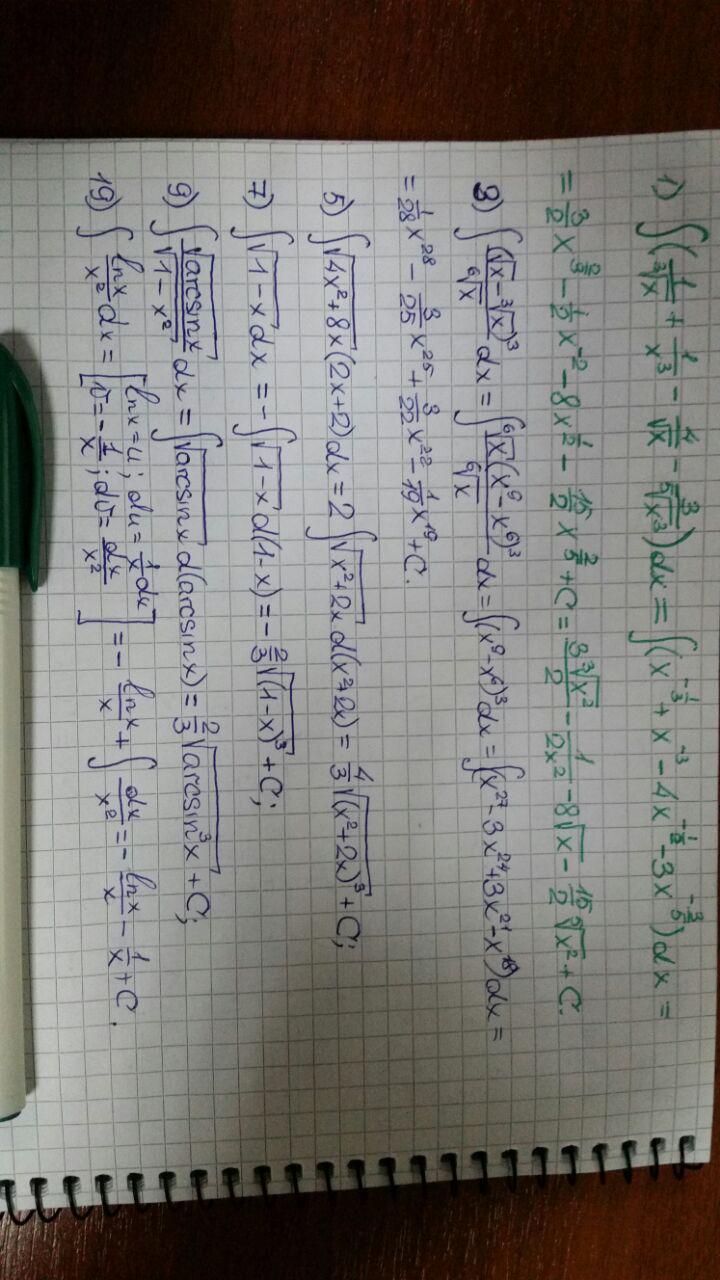 1) ∫(1/∛x + 1/x³ - 4/√x - 3/⁵√x³)dx = ∫(x^(-1/3) + x^(-3) - 4x^(-1/2) - 3x^(-3/5))dx =
= 3/2 x^(2/3) - 1/2 x^(-2) - 8x^(1/2) - 15/2 x^(2/5) + C = 3∛x²/2 - 1/2x² - 8√x - 15/2 ⁵√x² + C.
3) ∫ (√x - ∛x)³/⁶√x dx = ∫ ⁶√x(x⁹ - x⁶)³/⁶√x dx = ∫(x⁹ - x⁶)³dx = ∫(x²⁷ - 3x²⁴ + 3x²¹ - x¹⁸)dx =
= 1/28 x²⁸ - 3/25 x²⁵ + 3/22 x²² - 1/19 x¹⁹ + C.
5) ∫√(4x² + 8x) (2x + 2)dx = 2∫√(x² + 2x) d(x² + 2x) = 4/3 √(x² + 2x)³ + C;
7) ∫√(1 - x) dx = -∫√(1 - x) d(1 - x) = -2/3 √(1 - x)³ + C;
9) ∫ √arcsinx/√(1 - x²) dx = ∫√arcsinx d(arcsinx) = 2/3 √arcsin³x + C;
19) ∫ lnx/x² dx = [lnx = u; du = 1/x dx
v = -1/x; dv = dx/x²] = -lnx/x + ∫ dx/x² = -lnx/x - 1/x + C.